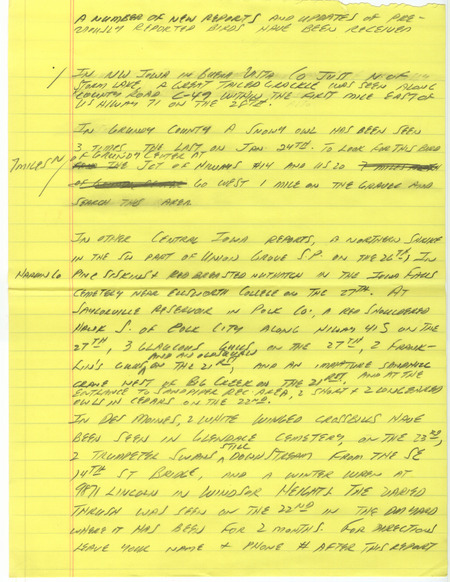 A NUMBER OF NEW REPORTS AND UPDATES OF PRE-
VIOUSLY REPORTED BIRDS HAVE BEEN RECEIVED
IN NW IOWA IN BUENA VISTA CO JUST N OF
STORM LAKE, A GREAT TAILED GRACKLE WAS SEEN ALONG
COUNTY ROAD C-49 WITHIN THE FIRST MILE EAST OF
US HIWAY 71 ON THE 28TH.
IN GRUNDY COUNTY A SNOWY OWL HAS BEEN SEEN
3 TIMES, THE LAST ON JAN 24TH. TO LOOK FOR THIS BIRD
7 MILES N OF GRUNDY CENTER AT
THE JCT OF HIWAYS #14 AND US 20
GO WEST 1 MILE ON THE GRAVEL AND
SEARCH THIS AREA
IN OTHER CENTRAL IOWA REPORTS, A NORTHERN SHRIKE
IN THE SW PART OF UNION GROVE S.P. ON THE 26TH; IN
HARDIN CO PINE SISKINS & RED BREASTED NUTHATCH IN THE IOWA FALLS
CEMETERY NEAR ELLSWORTH COLLEGE ON THE 27TH. AT
SAYLORVILLE RESERVOIR IN POLK CO., A RED SHOULDERED
HAWK S. OF POLK CITY ALONG HIWAY 415 ON THE
27TH, 3 GLAUCOUS GULLS, ON THE 27TH, 2 FRANK-
AND AN OLDSQUAW
LIN'S GULLS ON THE 21ST, AND AN IMMATURE SANDHILL
CRANE WEST OF BIG CREEK ON THE 21ST, AND AT THE
ENTRANCE TO SANDPIPER REC AREA, 2 SHORT & 2 LONG EARED
OWLS IN CEDARS ON THE 22ND.
IN DES MOINES, 2 WHITE WINGED CROSSBILLS HAVE
BEEN SEEN IN GLENDALE CEMETERY, ON THE 23RD,
STILL
2 TRUMPETER SWANS DOWNSTREAM FROM THE SE
14TH ST BRIDGE, AND A WINTER WREN AT
LINCOLN IN WINDSOR HEIGHTS. THE VARIED
THRUSH WAS SEEN ON THE 22ND IN THE DM YARD
WHERE IT HAS BEEN FOR 2 MONTHS. FOR DIRECTIONS
LEAVE YOUR NAME & PHONE # AFTER THIS REPORT